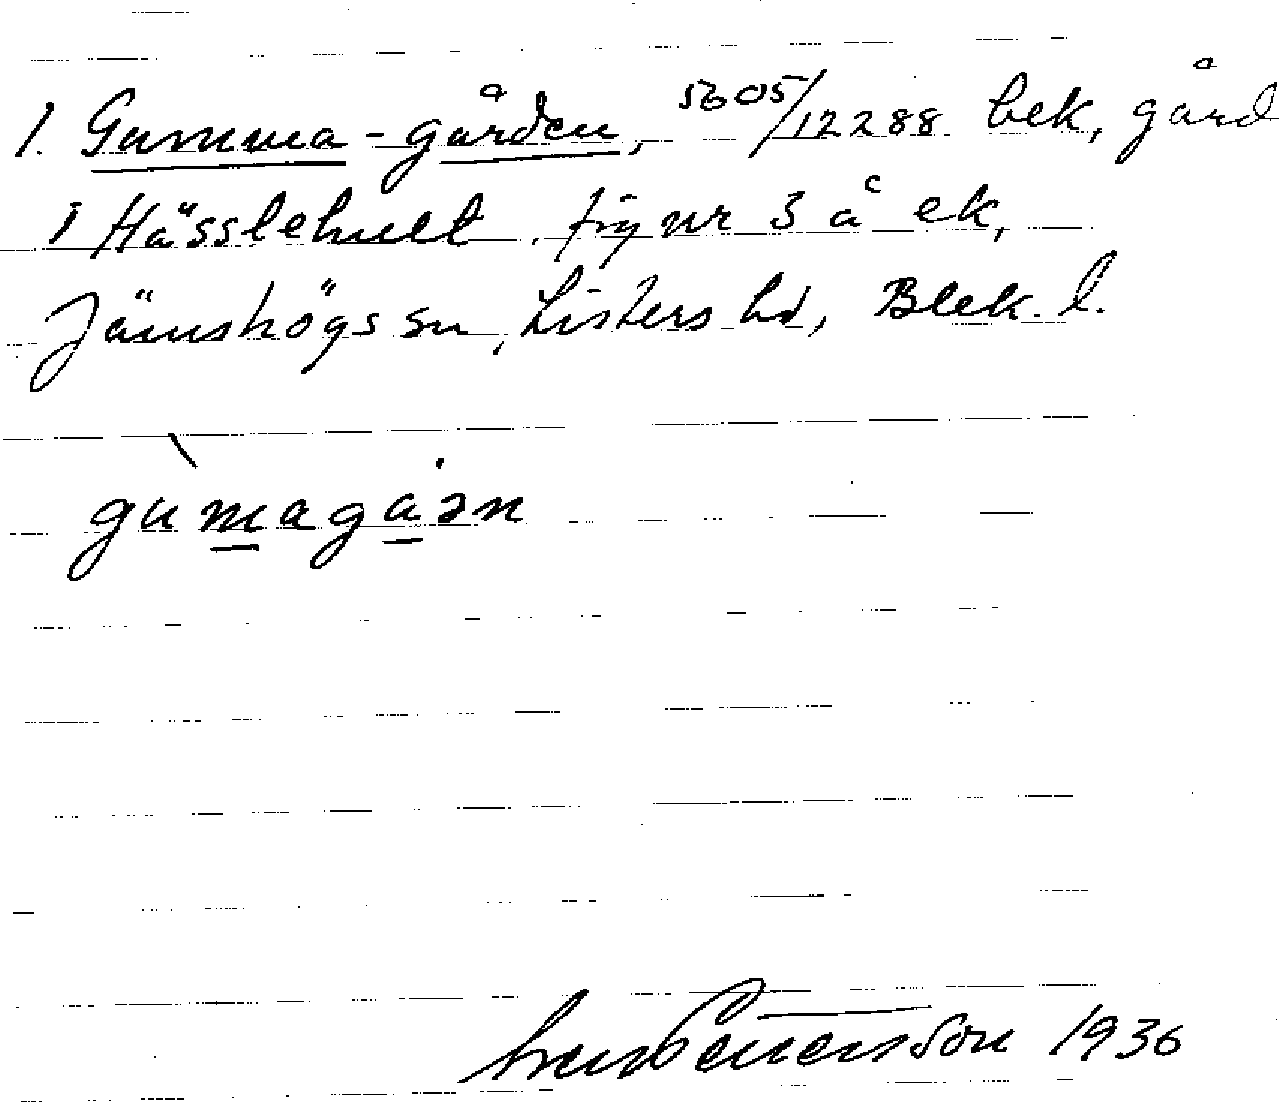 1. Gumma-gården, 5605/12288 bek, gård
i Hässlehult, fig nr 3 å ek,
Jämshögs sn, Listers hd, Blek. l.
gùmagȧən
1936